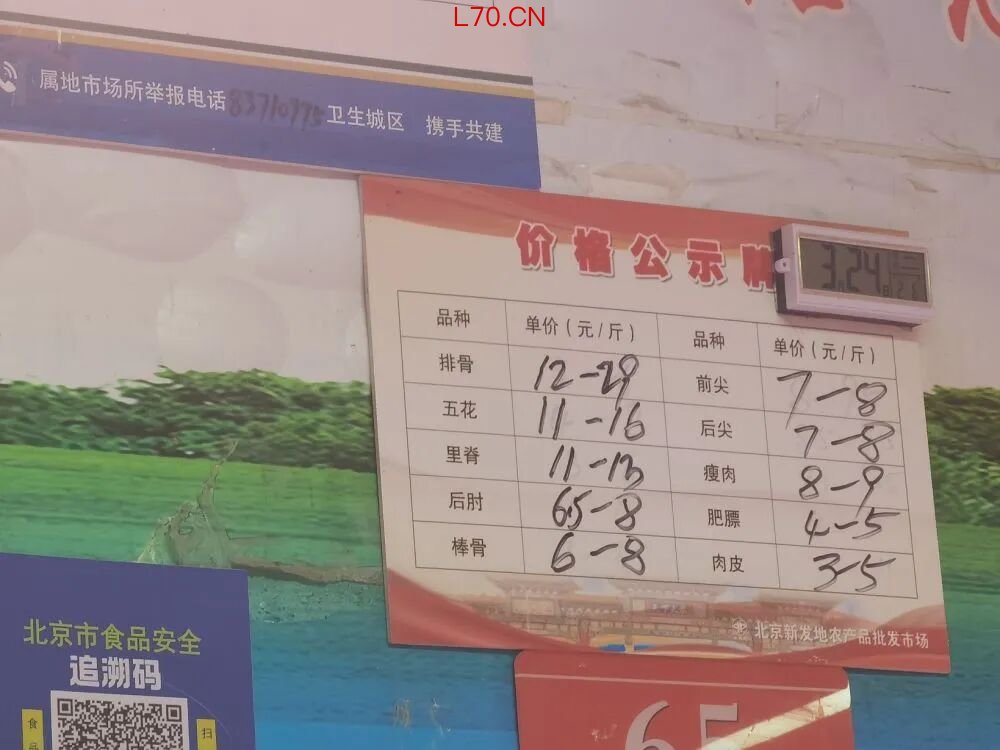 L70.CN
属地市场所举报电话83710775卫生城区 携手共建
价格公示牌
3.24
品种 单价(元/斤) 品种 单价(元/斤)
排骨 12-29 前尖 7-8
五花 11-16 后尖 7-8
里脊 11-13 瘦肉 8-9
后肘 6.5-8 肥膘 4-5
棒骨 6-8 肉皮 3-5
北京新发地农产品批发市场
北京市食品安全
追溯码
食 扫
品
65